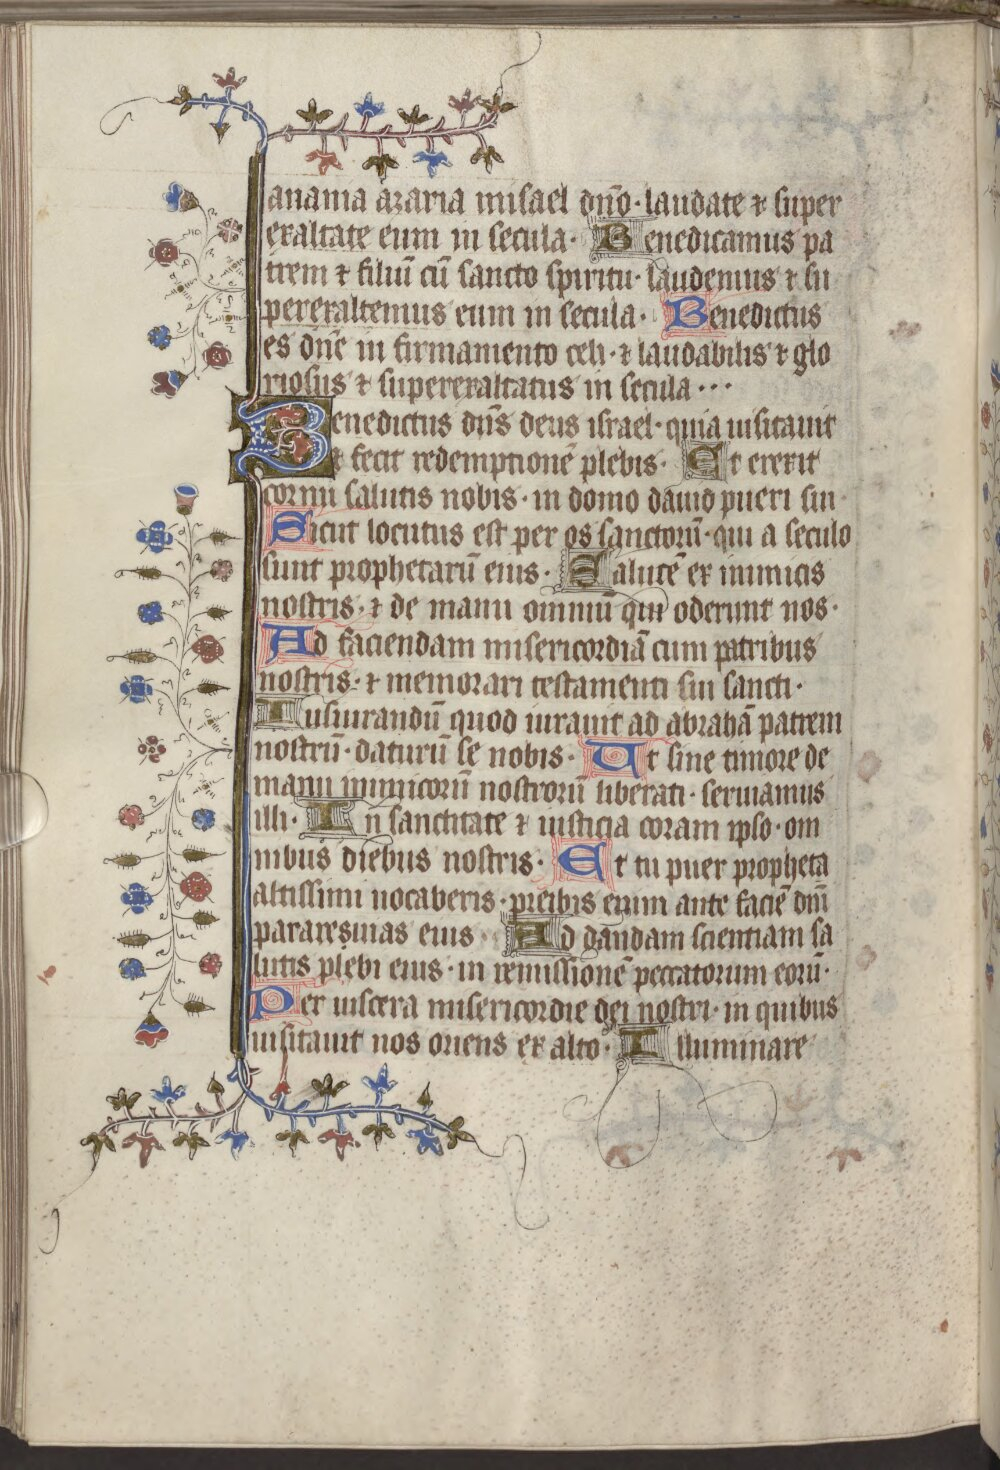 anania azaria misael dn̄o · laudate ⁊ super
exaltate eum in secula · Benedicamus pa
trem ⁊ filiū cū sancto spiritu · laudemus ⁊ su
perexaltemus eum in secula · Benedictus
es dn̄e in firmamento celi · ⁊ laudabilis ⁊ glo
riosus ⁊ superexaltatus in secula ···
Benedictus dn̄s deus israel · quia uisitauit
⁊ fecit redemptionē plebis · Et erexit
cornu salutis nobis · in domo dauid pueri sui ·
Sicut locutus est per os sanctorū · qui a seculo
sunt prophetarū eius · Salutē ex inimicis
nostris · ⁊ de manu omniū qui oderunt nos ·
Ad faciendam misericordiā cum patribus
nostris · ⁊ memorari testamenti sui sancti ·
Iusiurandū quod iurauit ad abrahā patrem
nostrū · daturū se nobis · Ut sine timore de
manu inimicorū nostrorū liberati · seruiamus
illi · In sanctitate ⁊ iusticia coram ipso · om
nibus diebus nostris · Et tu puer propheta
altissimi uocaberis · preibis enim ante faciē dn̄i
parare uias eius · Ad dandam scientiam sa
lutis plebi eius · in remissionē peccatorum eorū ·
Per uiscera misericordie dei nostri · in quibus
uisitauit nos oriens ex alto · Illuminare